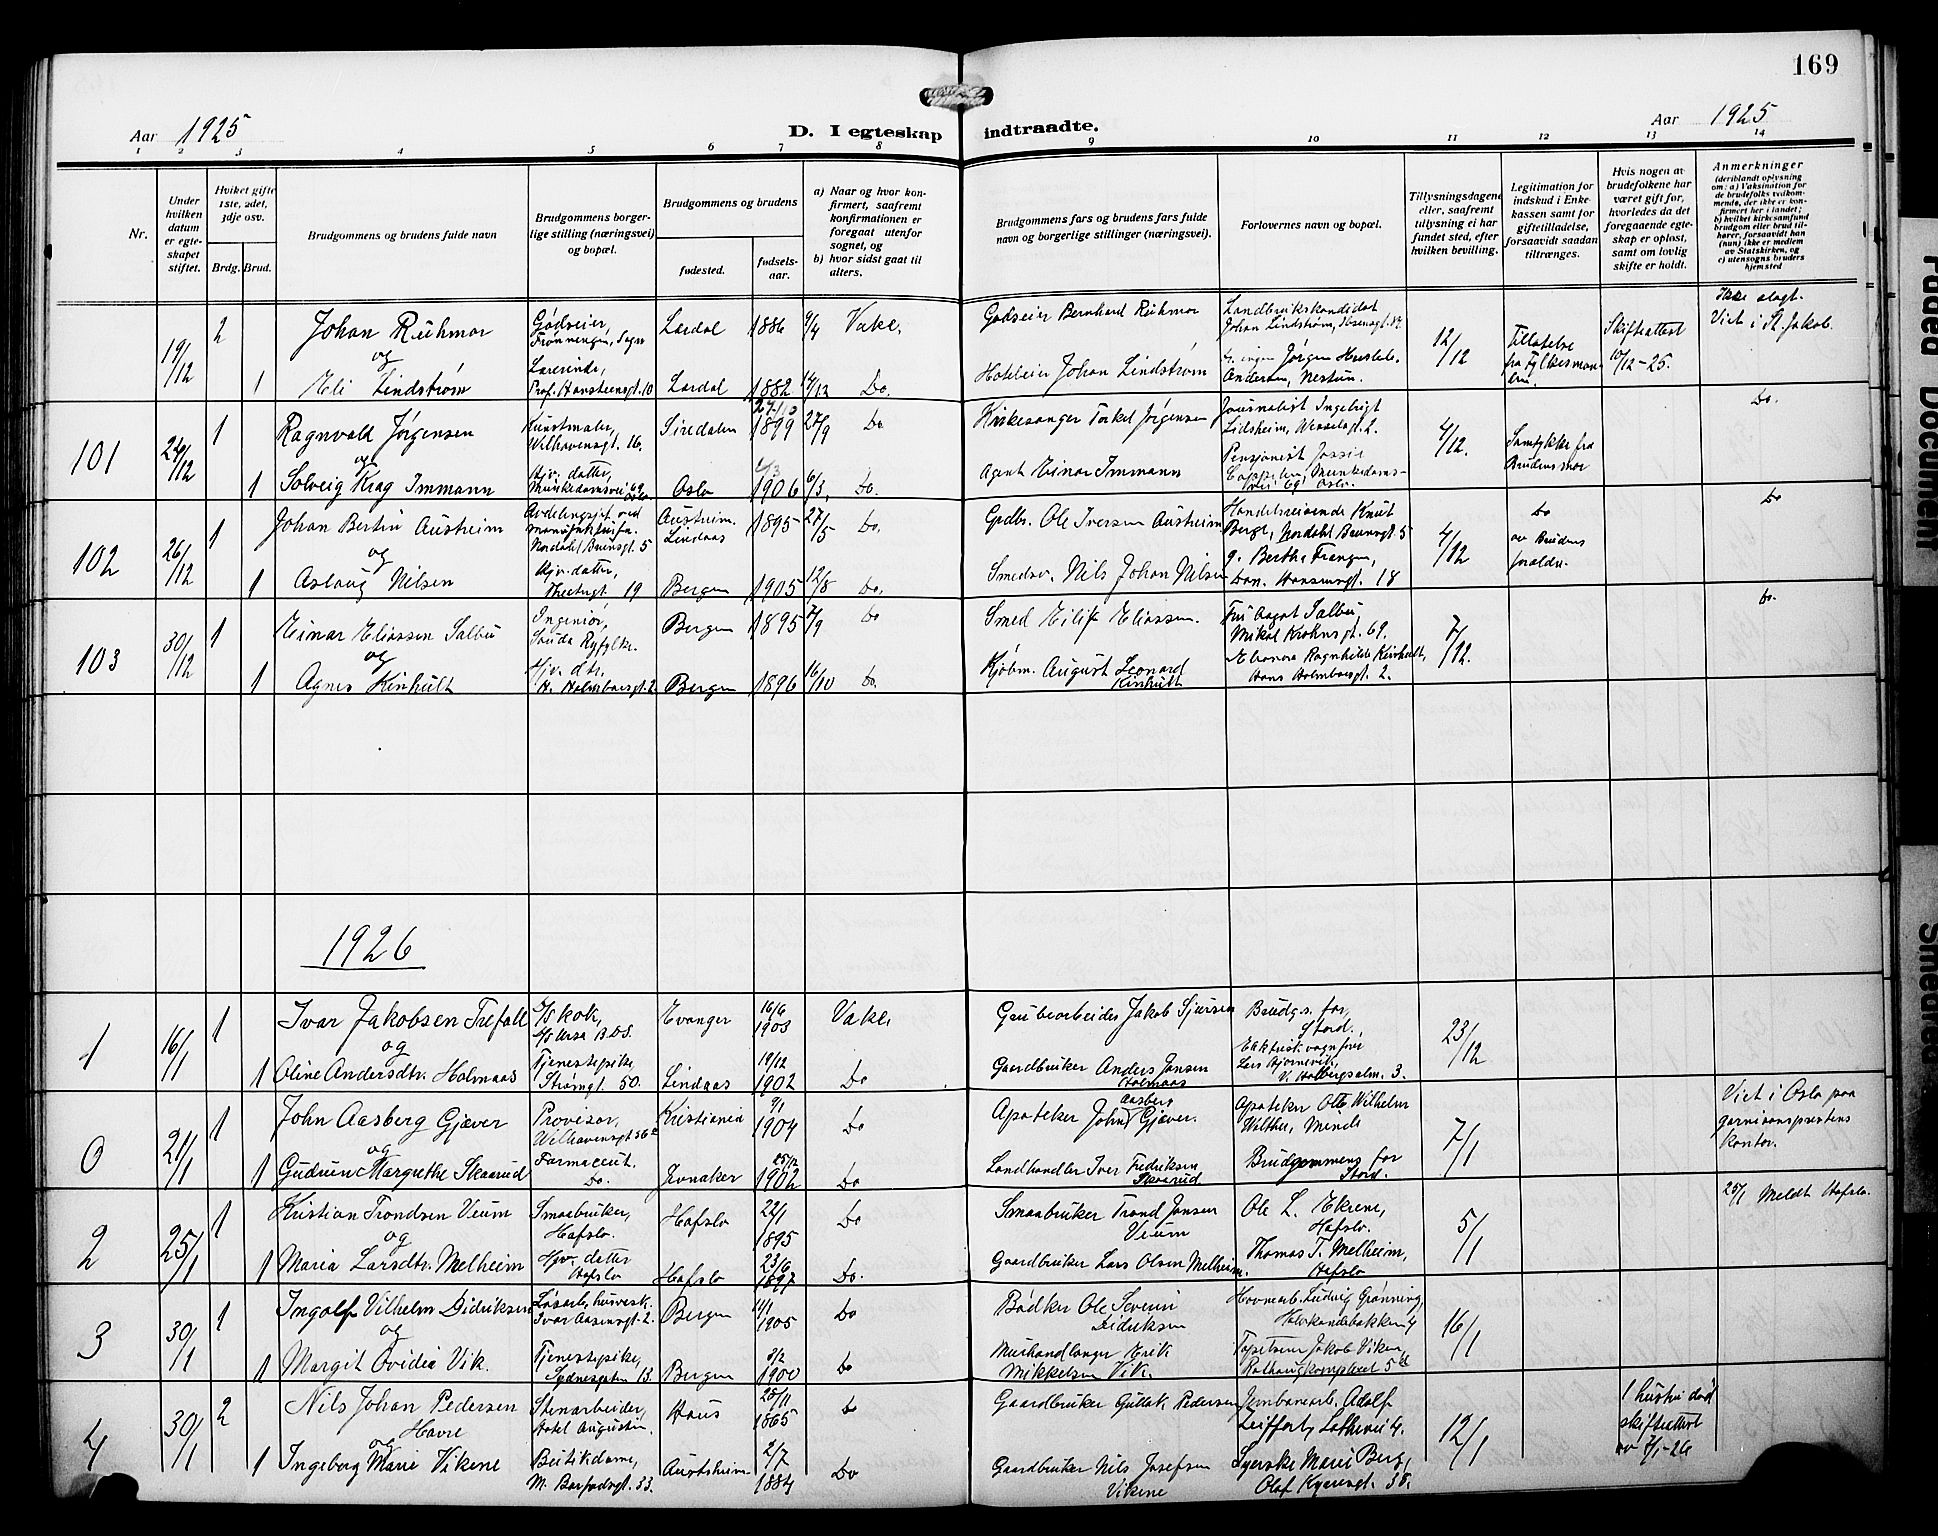 169
Aar 1925
D. I egteskap indtraadte.
Aar 1925
1 2 3 4 5 6 7 8 9 10 11 12 13 14
Nr.
Under hvilken datum er egteskapet stiftet.
Hvilket gifte 1ste, 2det, 3dje osv.
Brdg. Brud.
Brudgommens og brudens fulde navn
Brudgommens borgerlige stilling (næringsvei) og bopæl.
Brudgommens og brudens
fødested.
fødselsaar.
a) Naar og hvor konfirmert, saafremt konfirmationen er foregaat utenfor sognet, og
b) hvor sidst gaat til alters.
Brudgommens fars og brudens fars fulde navn og borgerlige stillinger (næringsvei).
Forlovernes navn og bopæl.
Tillysningsdagene eller, saafremt tillysning ei har fundet sted, efter hvilken bevilling.
Legitimation for indskud i Enkekassen samt for giftetilladelse, forsaavidt saadan tiltrænges.
Hvis nogen av brudefolkene har været gift før, hvorledes da det foregaaende egteskap er opløst, samt om lovlig skifte er holdt.
Anmerkninger
(deriblandt oplysning om: a) Vaksination for de brudefolks vedkommende, der ikke er konfirmert her i landet; b) hvilket kirkesamfund brudgom eller brud tilhører, forsaavidt han (hun) ikke er medlem av Statskirken, og c) utensogns bruders hjemsted
19/12 2 Johan Rühmor Godseier, Lærdal 1886 9/4 Vake. Godseier Bernhard Rühmor Landbrukskandidat Johan Lindstrøm, 12/12 Tillatelse fra Fylkesmanden. Skifteattest 10/12-25. Ikke slegt. Viet i St. Jakob.
og
1 Eli Lindstrøm Lærerinde, Prof. Hansteensgt. 10 Lærdal 1882 14/12 Do. Hoteleier Johan Lindstrøm Jørgen Andersen, Nestun.
101 24/12 1 Ragnvald Jørgensen Kunstmaler, Welhavensgt. 16. Siredalen 27/10 1899 27/9 Do Kirkesanger Torkel Jørgensen Journalist Ingebrigt Lidsheim, Wesselsgt. 2. 4/12. Samtykke fra Brudens mor Do.
og
1 Solveig Krag Immann Hjv. datter, Munkedamsvei 69 Oslo Oslo 1906 6/3. Do. Agent Einar Immann Pensjonist Jossie Cappelen, Munkedamsvei 69, Oslo.
102 26/12 1 Johan Bertin Austheim Avdelingssjef ved Nordahl Brunsgt. 5 Austheim. Lindaas 1895 27/5 Do. Grdbr. Ole Iversen Austheim Handelsreisende Knut Berge, Nordahl Brunsgt. 5 4/12 Do av Brudens foreldre. Do
og
1 Aslaug Nilsen Hjv. datter, 19 Bergen 1905 12/8 Do. Smedsv. Nils Johan Nilsen Bertha Frangen, Dan. Hansensgt. 18
103 30/12 1 Einar Eliassen Salbu Ingeniør, Sauda Ryfylke. Bergen 1895 7/9 Do Smed Eilif Eliassen. Fru Aagot Salbu, Mikal Krohnsgt. 69. 7/12. Do.
og
1 Agnes Kinhult Hjv. dtr. H. Holmboesgt. 2 Bergen 1896 16/10 Do. Kjøbm. August Leonard Kinhult Eleonora Ragnhilde Kinhult, Hans Holmboesgt. 2.
1926
1 16/1 1 Ivar Jakobsen Trefall Evanger 16/6 1903 Vake. Grubearbeider Jakob Sjursen Brudgs. far, Stord. 23/12
og
1 Oline Andersdtr. Holmaas Tjenestepike, Strømgt. 50. Lindaas 19/12 1902 Do Gaardbruker Anders Jansen Holmaas Elektrisk vognfører V. Holbergsalm. 3.
0 21/1 1 John Aasberg Gjæver Provisor, Welhavensgt. Kristiania 9/1 1904 Do Apoteker John Aasberg Gjæver. Apoteker Otto Wilhelm Walther, Mende 7/1 Viet i Oslo paa garnisonsprestens kontor.
og
1 Gudrun Margrethe Skaarud Farmaceut. Do. Jevnaker 25/12 1902 Do Landhandler Iver Fredriksen Skaarud Brudgommens far Stord.
2 25/1 1 Kristian Trondsen Veum Smaabruker, Hafslo. Hafslo 22/1 1895 Do Smaabruker Trond Jansen Veum Ole L. Ekrene, Hafslo. 5/1 25/1 Meldt Hafslo.
og
1 Maria Larsdtr. Melheim Hjv. datter Hafslo Hafslo 23/6 1897 Do. Gaardbruker Lars Olsen Melheim. Thomas T. Melheim, Hafslo
3 30/1 1 Ingolf Vilhelm Didriksen Løsarb., Ivar Aasensgt. 2. Bergen 11/1 1905 Do Bødker Ole Severin Didriksen Havnearb. Ludvig Grønning, 16/1
og
1 Margit Ovidia Vik. Tjenestepike, Sydnesgaten 13. Bergen 3/2 1900 Do Murhandlanger Erik Mikkelsen Vik. Tapetserer Jakob Viken,
4 30/1 2 Nils Johan Pedersen Havre Stenarbeider, Hotel Augustin. Haus 25/11 1865 Do Gaardbruker Gullak Pedersen Jernbanearb. Adolf Zeiffert, 12/1 1 hustru død skifteattest av 7/1-26
og
1 Ingeborg Marie Vikene M. Barfodsgt. 33. Austsheim 2/7 1884 Do Gaardbruker Nils Josefsen Vikene Syerske Marie Berg, Olaf Kyrresgt. 38.
Faded Document
Smeared